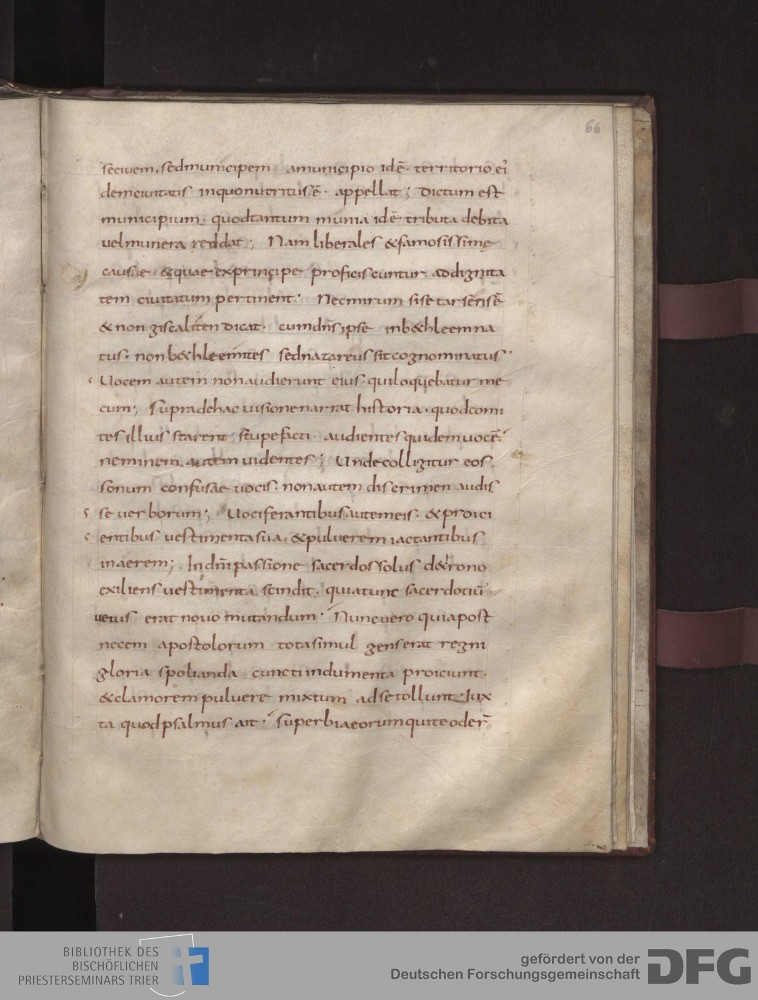 66
seciuem, sed municipem amunicipio idē territorio ei
dem ciuitatis inquonutritusē appellat; Dictum est
municipium, quodtantum munia idē tributa debita
uelmunera reddat; Nam liberales &famosissimę
causae &quae exprincipe proficiscuntur addignita
tem ciuitatum pertinent. Necmirum sise tarsensē
& non giscaliten dicat. cum dn̄s ipse inb&hleem na
tus, non b&hleemites sednazareus sit cognominatus.
Uocem autem nonaudierunt eius quiloquebatur me
cum; Supradehac uisione narrat historia, quodcomi
tes illius starent stupefacti audientes quidem uocē.
neminem autem uidentes; Unde colligitur eos
sonum confusae uocis, nonautem discrimen audis
se uerborum; Uociferantibus autem eis &proici
entibus uestimenta sua, &puluerem iactantibus
inaerem; In dn̄i passione sacerdos solus d&hrono
exiliens uestimenta scindit, quiatunc sacerdotiū
uetus erat nouo mutandum. Nunc uero quiapost
necem apostolorum totasimul gens erat regni
gloria spolianda cuncti indumenta proiciunt.
&clamorem puluere mixtum adse tollunt. Iux
ta quod psalmus ait. Superbia eorum qui te oder̄
BIBLIOTHEK DES
BISCHÖFLICHEN
PRIESTERSEMINARS TRIER
gefördert von der
Deutschen Forschungsgemeinschaft
DFG